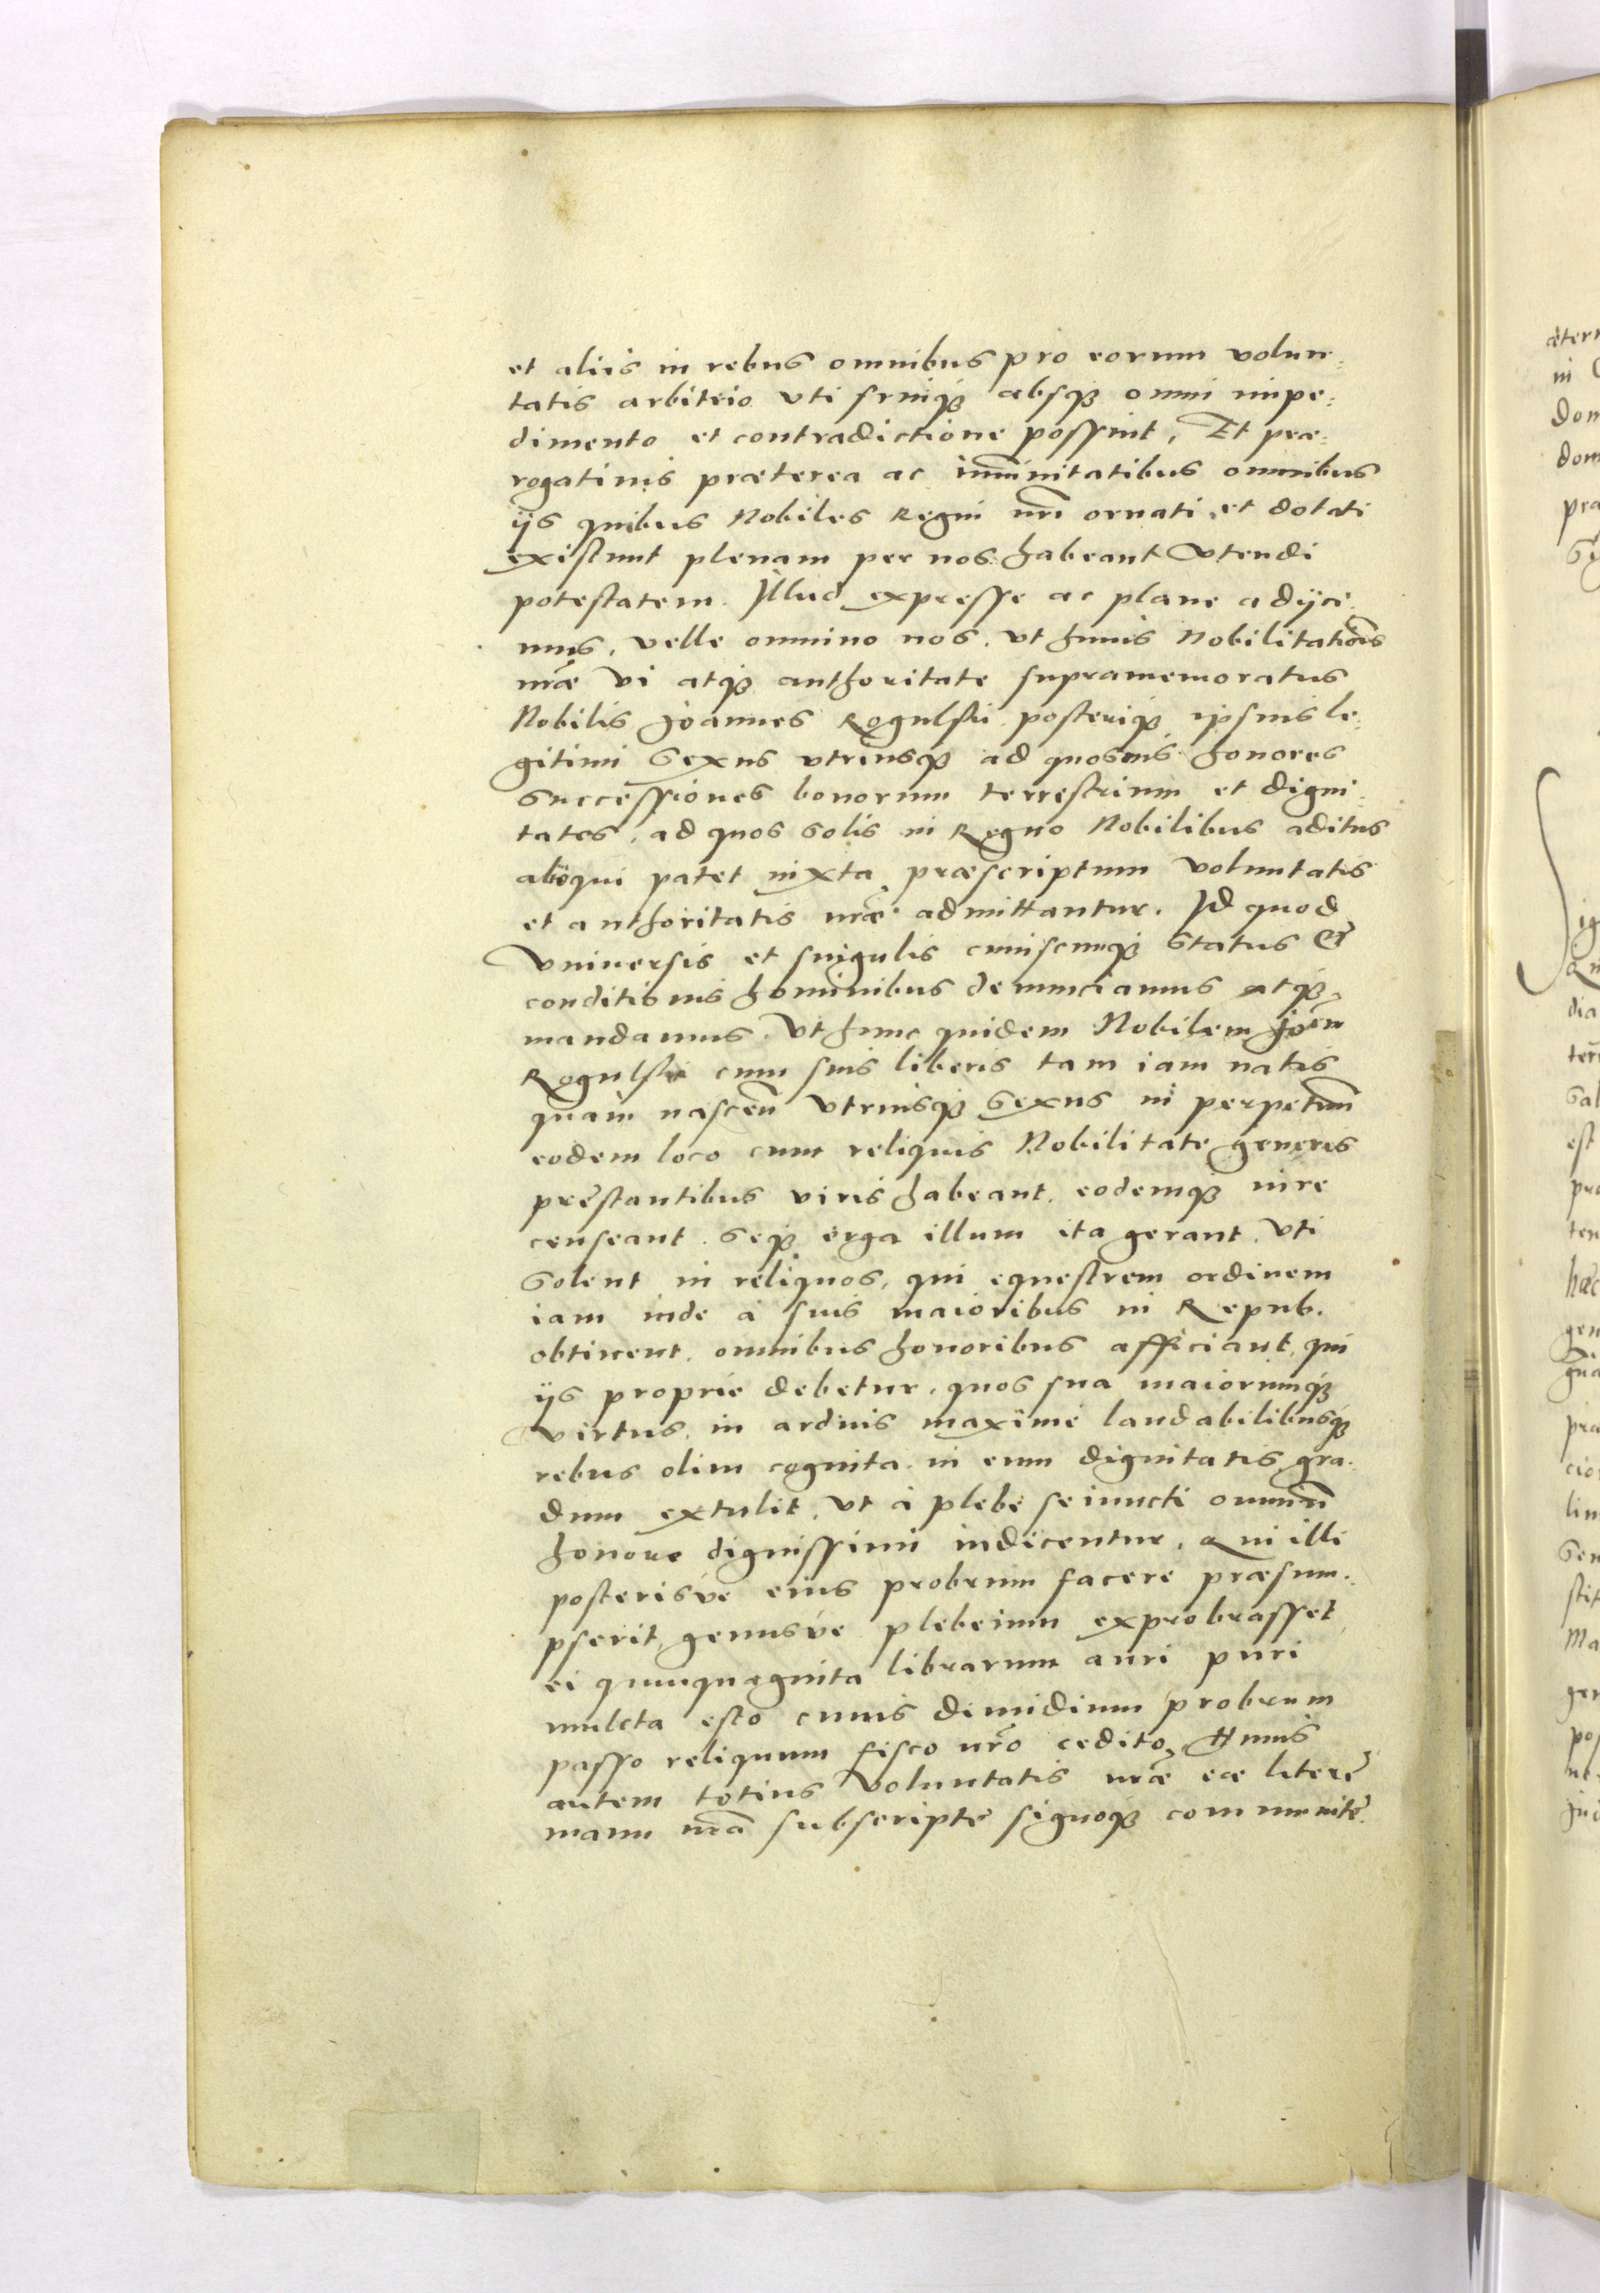 et aliis in rebus omnibus pro eorum volun:
tatis arbitrio uti fruiq̃ absq̃ omni impe:
dimento et contradictione possint, Et præ:
rogatiuis præterea ac im̃unitatibus omnibus
ijs quibus Nobiles Regni nr̃i ornati et dotati
existunt plenam per nos habeant Vtendi
potestatem. Illud expresse ac plane adijci:
mus, velle omnino nos. ut huius Nobilitatio͠is
nr̃æ vi atq̃ authoritate supramemoratus
Nobilis Joannes Rogulski posteriq̃ ipsius le:
gitimi sexus utriusq̃ ad quosuis honores
successiones bonorum terrestrium et digni:
tates, ad quos solis in Regno Nobilibus aditus
alioqui patet iuxta præscriptum voluntatis
et authoritatis nr̃æ admittantur. Id quod
Vniuersis et singulis cuiuscunq̃ status et
conditionis hominibus denunciamus atq̃
mandamus. Vt hunc quidem Nobilem Joẽm
Rogulski cum suis liberis tam iam natis
quam nascen̄ utriusq̃ sexus in perpetuum̄
eodem loco cum reliquis Nobilitate generis
prestantibus viris habeant. eodemq̃ iure
censeant. seq̃ erga illum ita gerant, uti
solent in reliquos, qui equestrem ordinem
iam inde a suis maioribus in Repub.
obtinent. omnibus honoribus afficiant, qui
ijs proprie debetur, quos sua maiorumq̃
virtus, in arduis maxime laudabilibusq̃
rebus olim cognita in eum dignitatis gra:
dum extulit, ut à plebe seiuncti omnium̄
honore dignissimi iudicentur, Qui illi
posterisve eius probrum facere præsum:
pserit, genusve plebeium exprobrasset
ei quinquaginta librarum auri puri
mulcta esto cuius dimidium probrum
passo reliquum fisco nr̃o cedito. Huius
autem totius voluntatis nr̃æ eæ literę
manu nr̃a subscriptę signoq̃ communitę